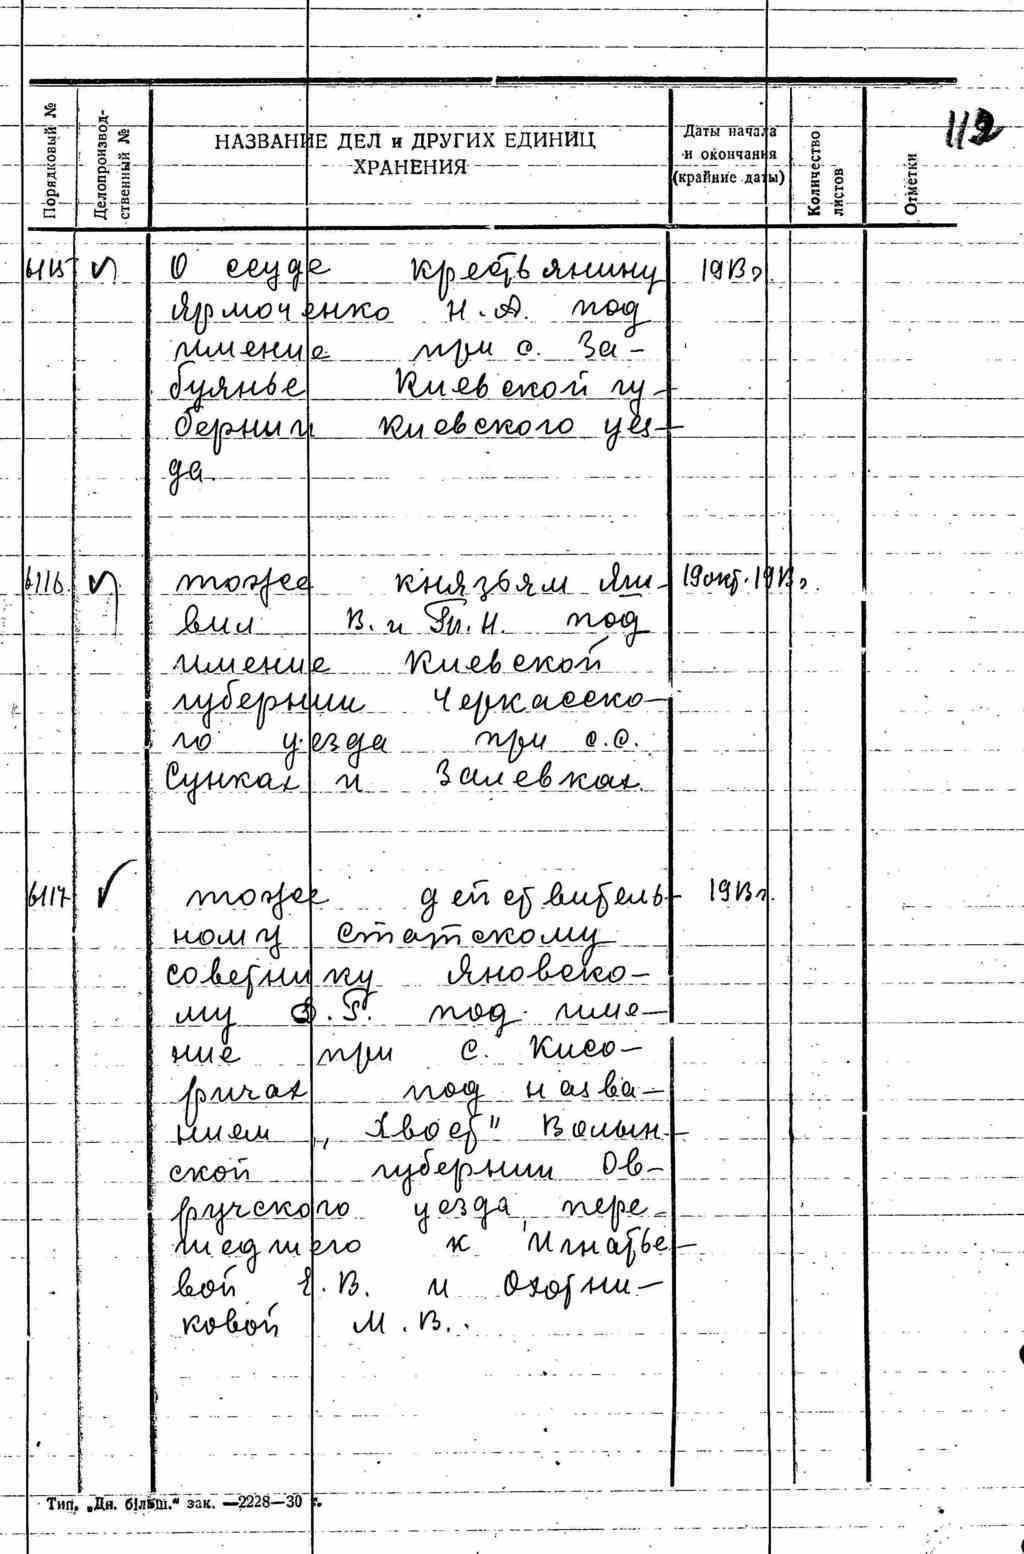 112
Порядковый №
Делопроизвод-
ственный №
НАЗВАНИЕ ДЕЛ и ДРУГИХ ЕДИНИЦ
ХРАНЕНИЯ
Даты начала
и окончания
(крайние даты)
Количество
листов
Отметки
6115 О ссуде крестьянину 1913 г.
Ярмоченко Н.А. под
имение при с. За-
буянье Киевской гу-
бернии Киевского уез-
да.
6116. тоже князьям Яш- 19 окт. 1913 г.
вил В. и Вл. Н. под
имение Киевской
губернии Черкасско-
го уезда при с.с.
Сунках и Залевках.
6117 тоже действитель- 1913 г.
ному статскому
советнику Яновско-
му В. под име-
ние при с. Кисо-
ричах под назва-
нием „Хвост" Волын-
ской губернии Ов-
ручского уезда, пере-
шедшего к Игнатье-
вой Е.В. и Охотни-
ковой М.В..
Тип. „Дн. більш.“ зак. —2228—30 г.